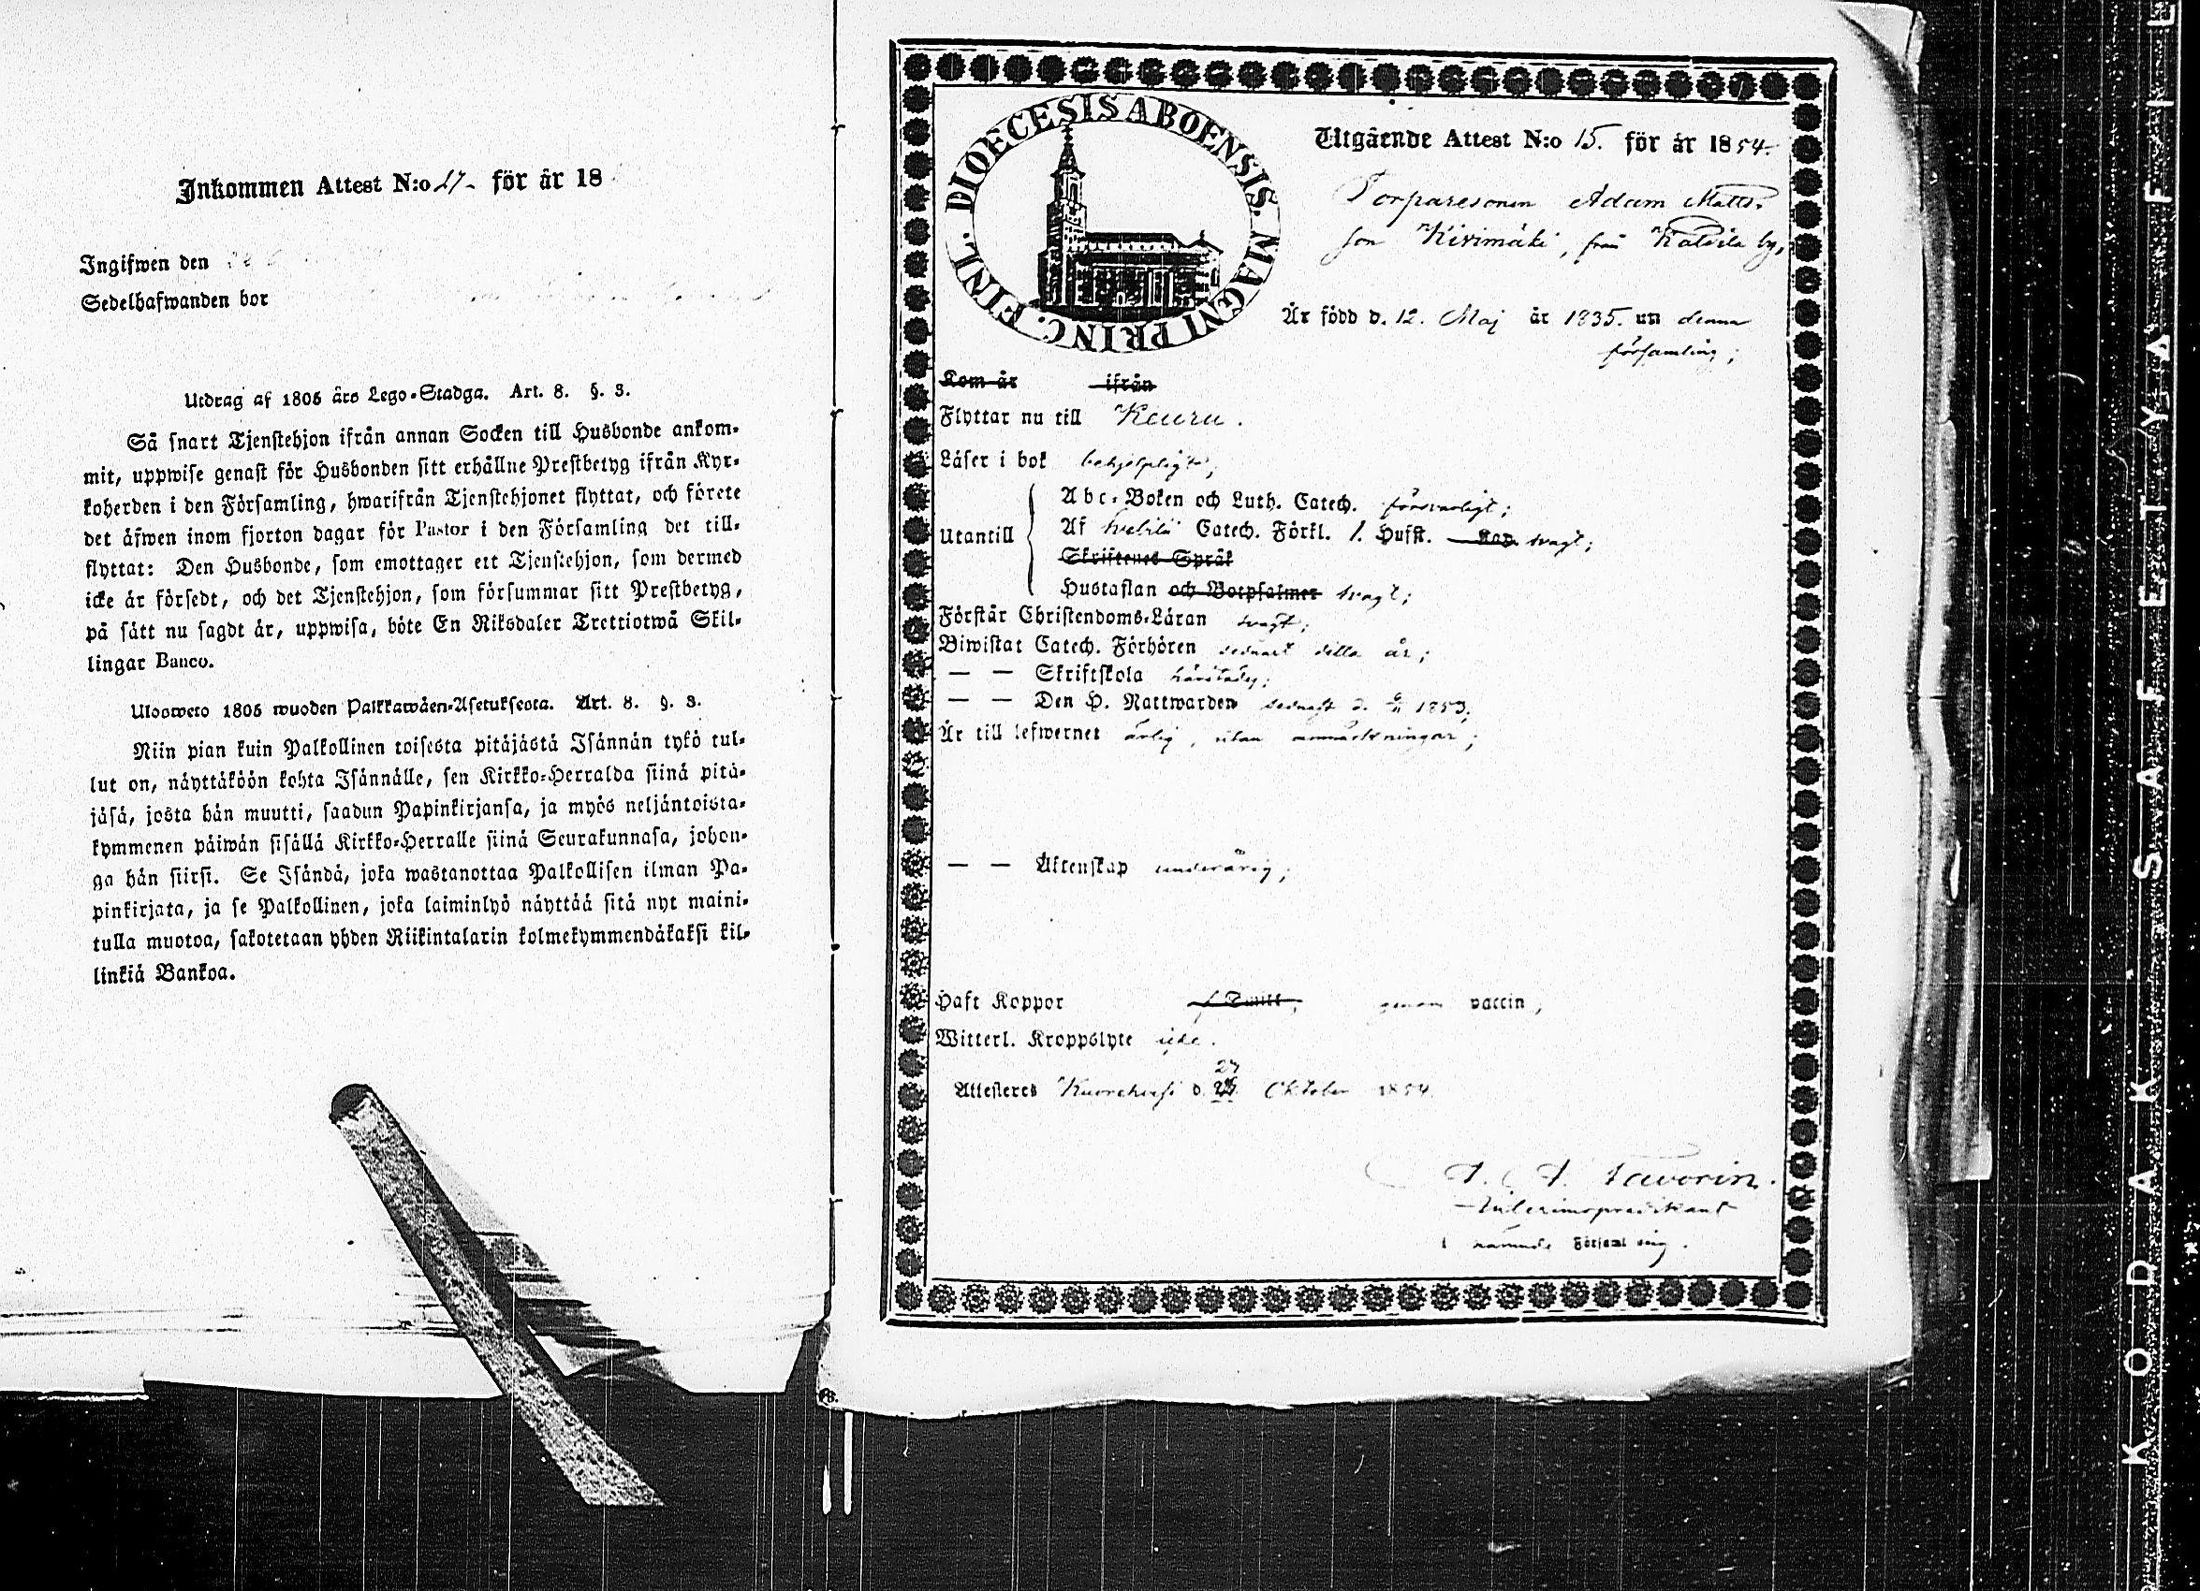 Inkommen Attest N:o 27. för år 18
Ingifwen den
Sedelhafwanden bor
Utdrag af 1805 års Lego-Stadga. Art. 8. §. 3.
Så snart Tjenstehjon ifrån annan Socken till Husbonde ankom-
mit, uppwise genast för Husbonden sitt erhållne Prestbetyg ifrån Kyr-
koherden i den Församling, hwarifrån Tjenstehjonet flyttat, och förete
det äfwen inom fjorton dagar för Pastor i den Församling det till-
flyttat: Den Husbonde, som emottager ett Tjenstehjon, som dermed
icke är försedt, och det Tjenstehjon, som försummar sitt Prestbetyg,
på sätt nu sagdt är, uppwisa, böte En Riksdaler Trettiotwå Skil-
lingar Banco.
Ulosweto 1805 wuoden Palkkawäen-Asetuksesta. Art. 8. §. 3.
Niin pian kuin Palkollinen toisesta pitäjästä Isännän tykö tul-
lut on, näyttäköön kohta Isännälle, sen Kirkko-Herralda siinä pitä-
jäsä, josta hän muutti, saadun Papinkirjansa, ja myös neljäntoista-
kymmenen päiwän sisällä Kirkko-Herralle siinä Seurakunnasa, johon-
ga hän siirsi. Se Isändä, joka wastanottaa Palkollisen ilman Pa-
pinkirjata, ja se Palkollinen, joka laiminlyö näyttää sitä nyt maini-
tulla muotoa, sakotetaan yhden Riikintalarin kolmekymmendäkaksi kil-
linkiä Bankoa.
DIOECESIS ABOENSIS. MAGNI PRINC. FINL.
Utgående Attest N:o 15. för år 1854.
Torparesonen Adam Matts-
son Kivimäki, från by,
Är född d. 12. Maj år 1835. uti denna
församling;
Kom år ifrån
Flyttar nu till Keuru.
Läser i bok behjelpligt,
Utantill
Abc-Boken och Luth. Catech. försvarligt;
Af Svebilii Catech. Förkl. 1. Hufst. Kap. svagt;
Skriftenes Språk
Hustaflan och Botpsalmer svagt;
Förstår Christendoms-Läran svagt;
Biwistat Catech. Förhören sednast detta år;
— — Skriftskola härstädes;
— — Den H. Nattwarden sednast d. 1853;
Är till lefwernet ärlig, utan anmärkningar;
— — Äktenskap underårig;
Haft Koppor genom vaccin,
Witterl. Kroppslyte icke.
Attesteres Kuorehvesi d. 27 Oktober 1854.
Favorin.
Interimspredikant
i nämnde Församling.
KODAK SAFETY FIL